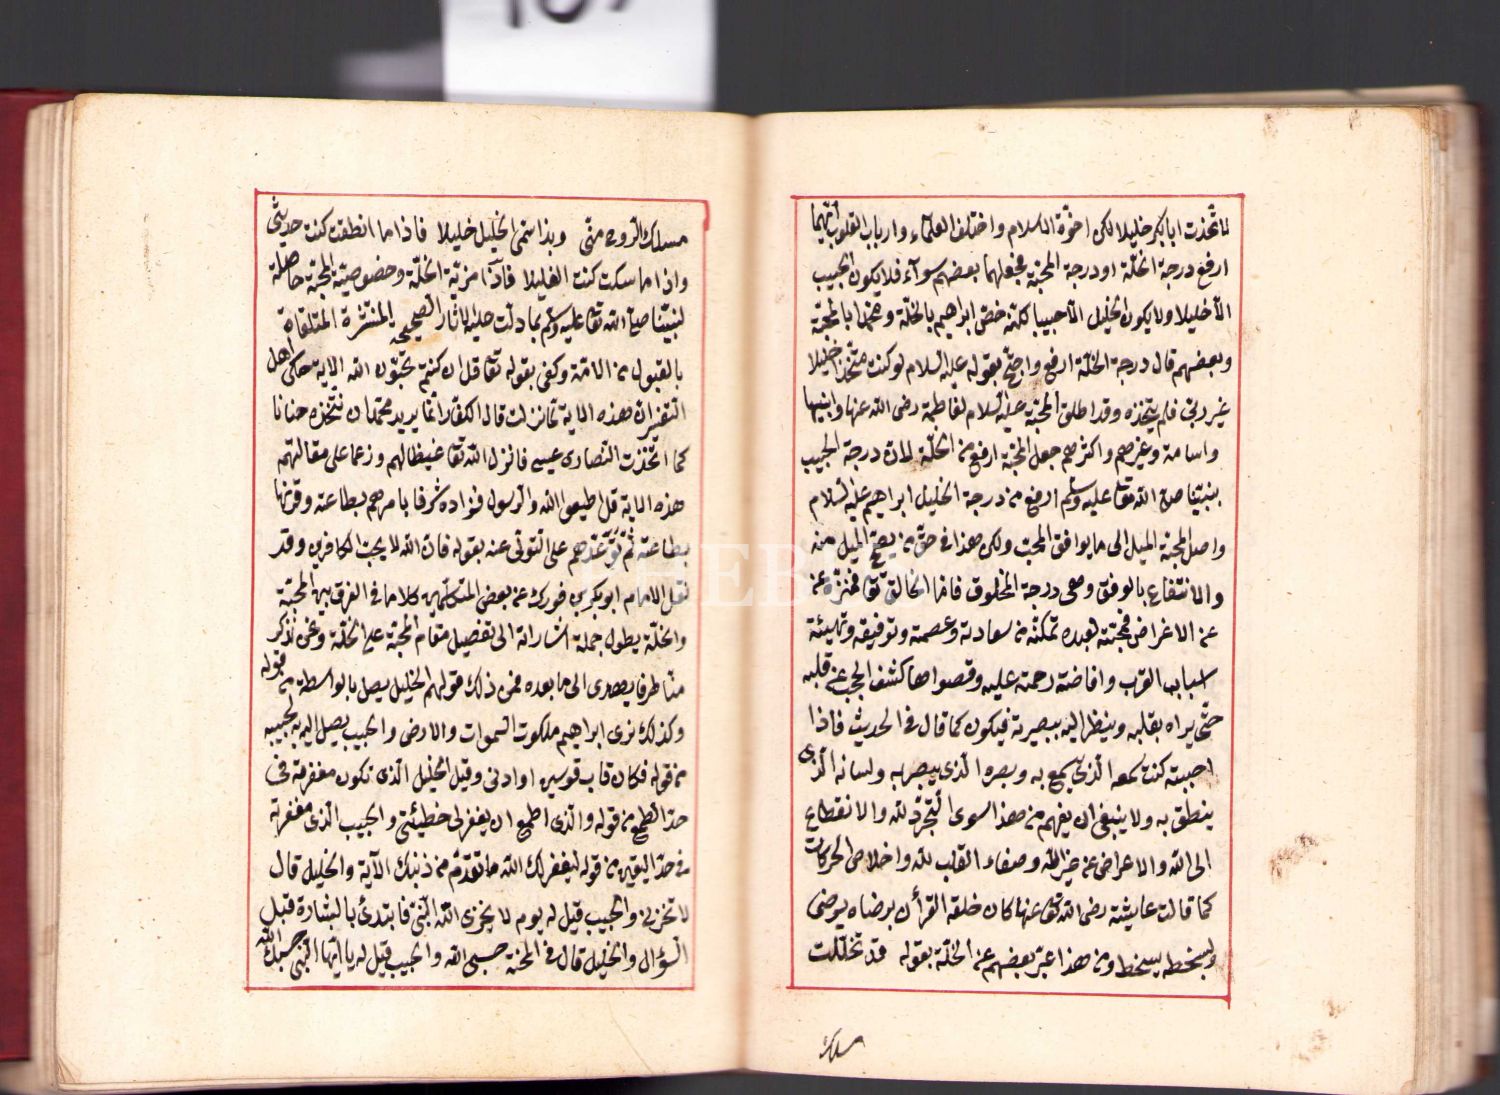 لاتّخذت ابا بكر خليلا لكن اخوّة الاسلام واختلف العلماء وارباب القلوب ايّهما
ارفع درجة الخلّة او درجة المحبّة فجعلهما بعضهم سواء فلا يكون الحبيب
الاّ خليلا ولا يكون الخليل الاّ حبيبا لكنّه خصّ ابراهيم بالخلّة ومحمّدا بالمحبّة
وبعضهم قال درجة الخلّة ارفع واحتجّ بقوله عليه السلام لو كنت متّخذا خليلا
غير ربّى فلم يتّخذه وقد اطلق المحبّة عليه السلام لفاطمة رضى الله عنها وابنيها
واسامة وغيرهم واكثرهم جعل المحبّة ارفع من الخلّة لان درجة الحبيب
نبيّنا صلى الله تعا عليه وسلم ارفع من درجة الخليل ابراهيم عليه السلام
واصل المحبّة الميل الى ما يوافق المحبّ ولكن هذا فى حقّ من يصحّ الميل منه
والانتفاع بالوفق وهى درجة المخلوق فامّا الخالق تعا فمنزّه عن
عن الاغراض فمحبّته لعبده تمكّنه من سعادته وعصمته وتوفيقه وتهيئة
اسباب القرب وافاضة رحمته عليه وقصواها كشف الحجب عن قلبه
حتّى يراه بقلبه وينظر اليه ببصيرته فيكون كما قال فى الحديث فاذا
احببته كنت سمعه الّذى يسمع به وبصره الّذى يبصر به ولسانه الّذى
ينطق به ولا ينبغى ان يفهم من هذا سوى التّجرّد لله والانقطاع
الى الله والاعراض عن غير الله وصفاء القلب لله واخلاص الحركات
كما قالت عايشة رضى الله تعا عنها كان خلقه القرأن برضاه يرضى
وبسخطه يسخط ومن هذا عبّر بعضهم عن الخلّة بقوله قد تخلّلت
مسلك
مسلك الروح منّى وبذا سمّى الخليل خليلا فاذا ما انطقت كنت حديثى
واذا ما سكت كنت الغليلا فاذا مزيّة الخلّة وخصوصيّة المحبّة حاصلة
لنبيّنا صلى الله تعا عليه وسلم بما دلّت عليه الاثار الصحيحة المنتشرة المتلقاة
بالقبول من الامّة وكفى بقوله تعا قل ان كنتم تحبّون الله الاية حكى اهل
التفسير ان هذه الاية لمّا نزلت قال الكفّار انّما يريد محمّد ان نتّخذه حنانا
كما اتّخذت النصارى عيسى فانزل الله تعا غيظا لهم ورغما على مقالتهم
هذه الاية قل اطيعوا الله والرسول فزاده شرفا بامرهم بطاعته وقرنها
بطاعته ثمّ توعّدهم على التولّى عنه بقوله فان الله لا يحبّ الكافرين وقد
نقل الامام ابو بكر بن فورك عن بعض المتكلّمين كلاما فى الفرق بين المحبّة
والخلّة يطول جملة اشاراته الى تفضيل مقام المحبّة على الخلّة ونحن نذكر
منه طرفا يهدى الى ما بعده فمن ذلك قولهم الخليل يصل بالواسطة من قوله
وكذلك نرى ابراهيم ملكوت السموات والارض والحبيب يصل اليه به لحبيبه
من قوله فكان قاب قوسين او ادنى وقيل الخليل الّذى تكون مغفرته فى
حدّ الطمع من قوله والّذى اطمع ان يغفر لى خطيئتى والحبيب الّذى مغفرته
فى حدّ اليقين من قوله ليغفر لك الله ما تقدّم من ذنبك الآية والخليل قال
لا تخزنى والحبيب قيل له يوم لا يخزى الله النبّى فابتدئ بالبشارة قبل
السّؤال والخليل قال فى المحنة حسبى الله والحبيب قيل له يا ايّها النّبى حسبك الله